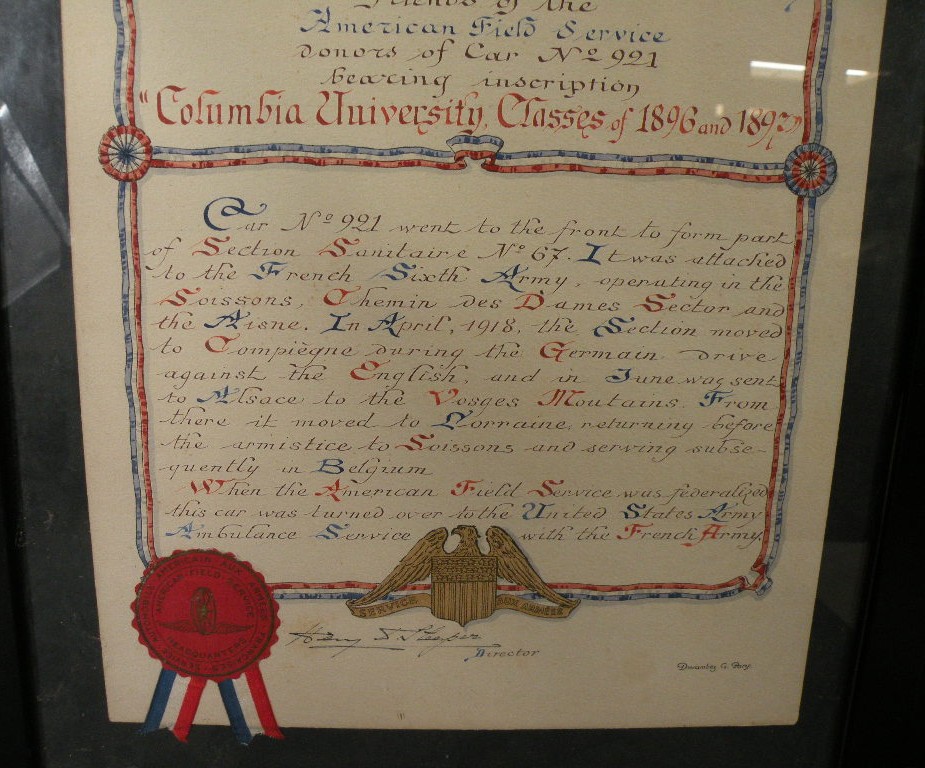 Friends of the
American Field Service
donors of Car Nº 921
bearing inscription
"Columbia University, Classes of 1896 and 1897"
Car Nº 921 went to the front to form part
of Section Sanitaire Nº 67. It was attached
to the French Sixth Army, operating in the
Soissons, Chemin des Dames Sector and
the Aisne. In April, 1918, the Section moved
to Compiègne during the German drive
against the English, and in June was sent
to Alsace to the Vosges Moutains. From
there it moved to Lorraine, returning before
the armistice to Soissons and serving subse-
quently in Belgium
When the American Field Service was federalized
this car was turned over to the United States Army
Ambulance Service with the French Army.
AMERICAN FIELD SERVICE
HEADQUARTERS
SERVICE AUX ARMEES
Henry D. Sleeper
Director